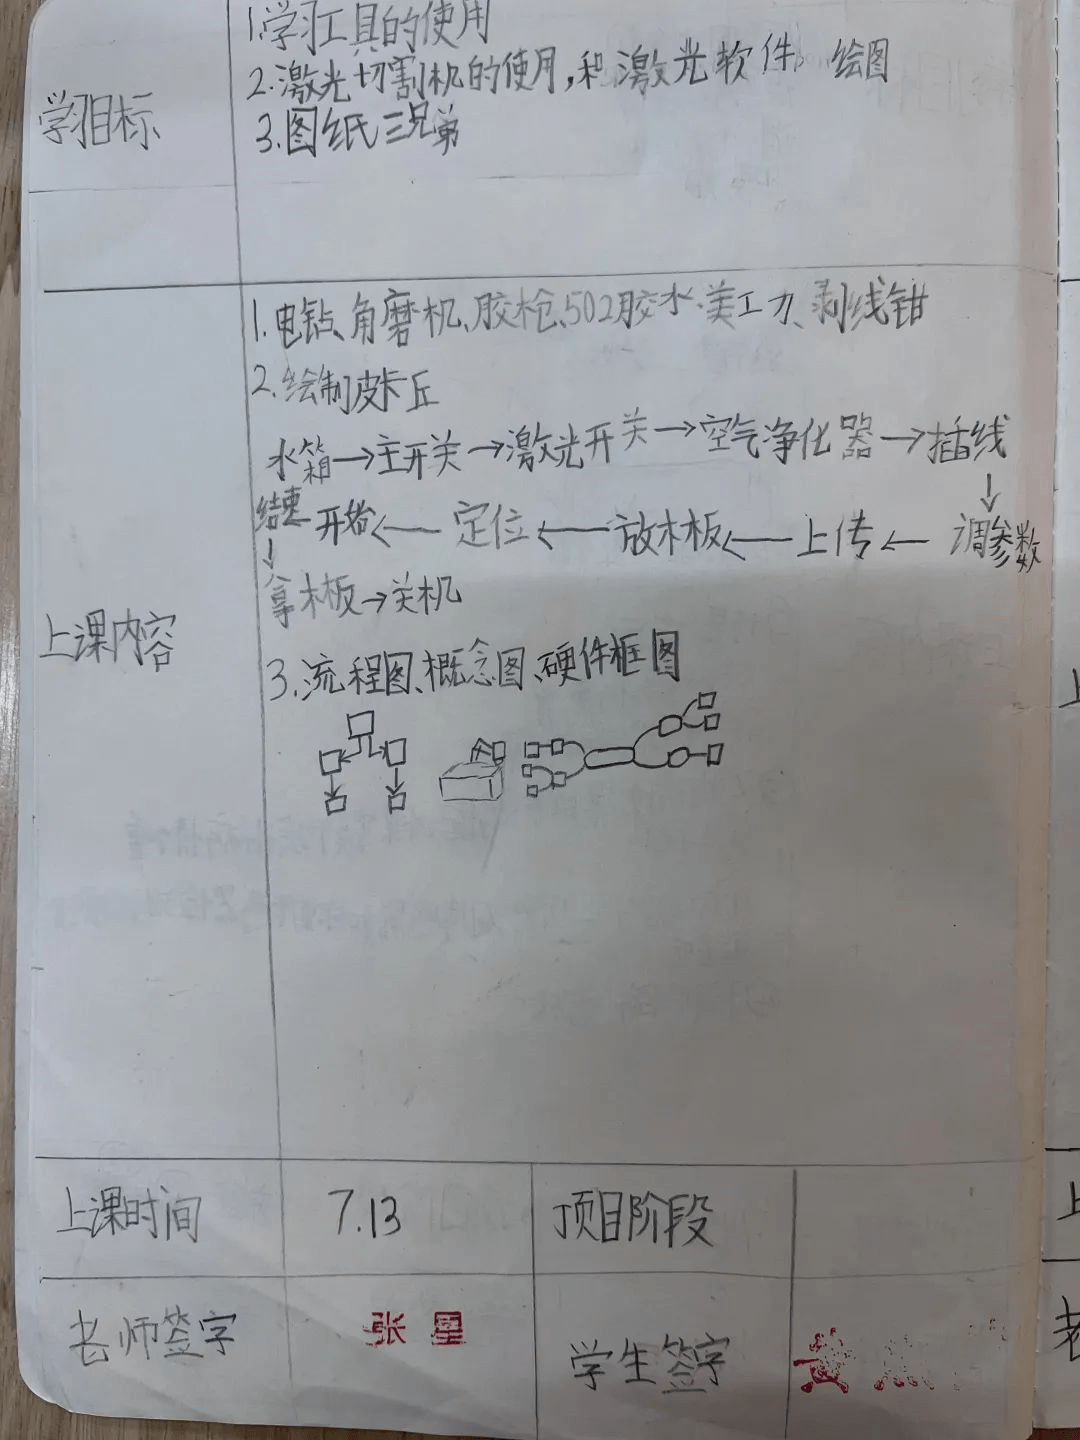 学习目标
1.学习工具的使用
2.激光切割机的使用,和激光软件。绘图
3.图纸三兄弟
上课内容
1.电钻、角磨机、胶枪、502胶水、美工刀、剥线钳
2.绘制皮卡丘
水箱→主开关→激光开关→空气净化器→插线
↓
结束 开始←定位←放木板←上传←调参数
↓
拿木板→关机
3.流程图、概念图、硬件框图
上课时间 7.13 项目阶段
老师签字 张星 学生签字